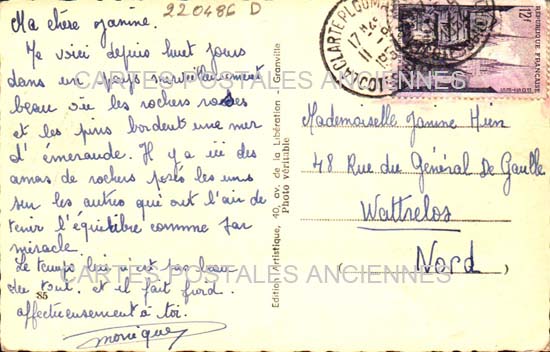 220486 D
Ma chère Janine.
Je voici depuis huit jours
dans un pays merveilleusement
beau où les rochers roses
et les pins bordent une mer
d'émeraude. Il y a ici des
amas de rochers posés les uns
sur les autres qui ont l'air de
tenir l'équilibre comme par
miracle.
Le temps lui n'est pas beau
du tout. et il fait froid.
affectueusement à toi.
Monique
85
Edition Artistique, 40, av. de la Libération - Granville
Photo véritable
LA CLARTE PLOUMA
17 H
11
COTES
12F
REPUBLIQUE FRANÇAISE
Mademoiselle Janine Hien
48 Rue du Général De Gaulle
Wattrelos
Nord
CARTES POSTALES ANCIENNES
CARTES POSTALES ANCIENNES